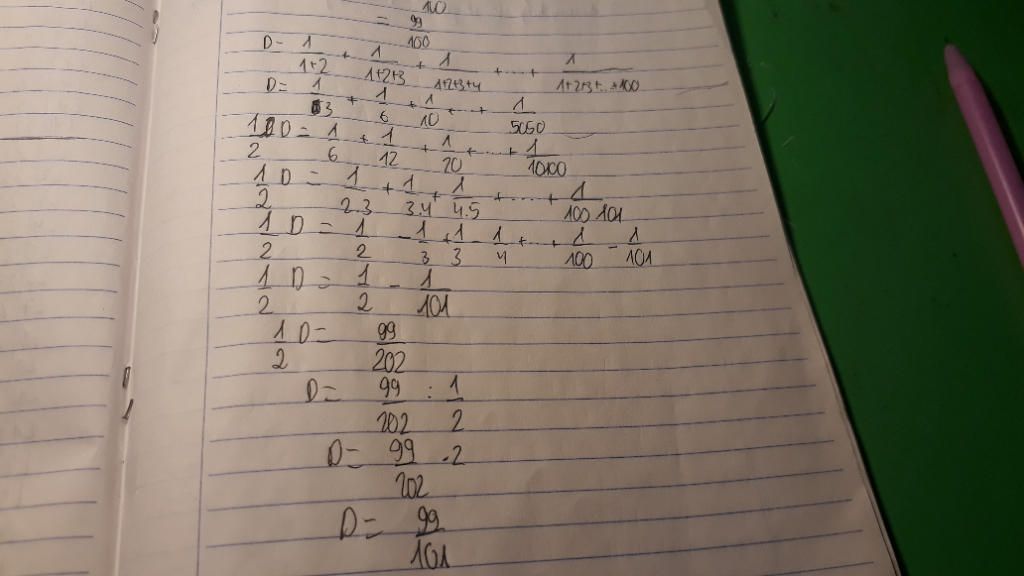 100
= 99/100
D = 1/1+2 + 1/1+2+3 + 1/1+2+3+4 + ... + 1/1+2+3+...+100
D = 1/3 + 1/6 + 1/10 + ... + 1/5050
1/2 D = 1/6 + 1/12 + 1/20 + ... + 1/10100
1/2 D = 1/2.3 + 1/3.4 + 1/4.5 + ... + 1/100.101
1/2 D = 1/2 - 1/3 + 1/3 - 1/4 + ... + 1/100 - 1/101
1/2 D = 1/2 - 1/101
1/2 D = 99/202
D = 99/202 : 1/2
D = 99/202 . 2
D = 99/101